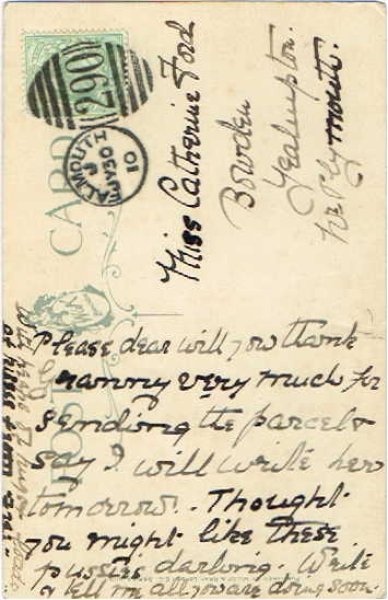 290
FALMOUTH
MY 30
10
POST CARD
Miss Catherine Ford
Bowden
Yealmpton.
Nr Plymouth.
Please dear will you thank
Grammy very much for
sending the parcel &
say I will write her
tomorrow. Thought
you might like these
pussies darling. Write
& tell me all you are doing soon.
With
of kisses from